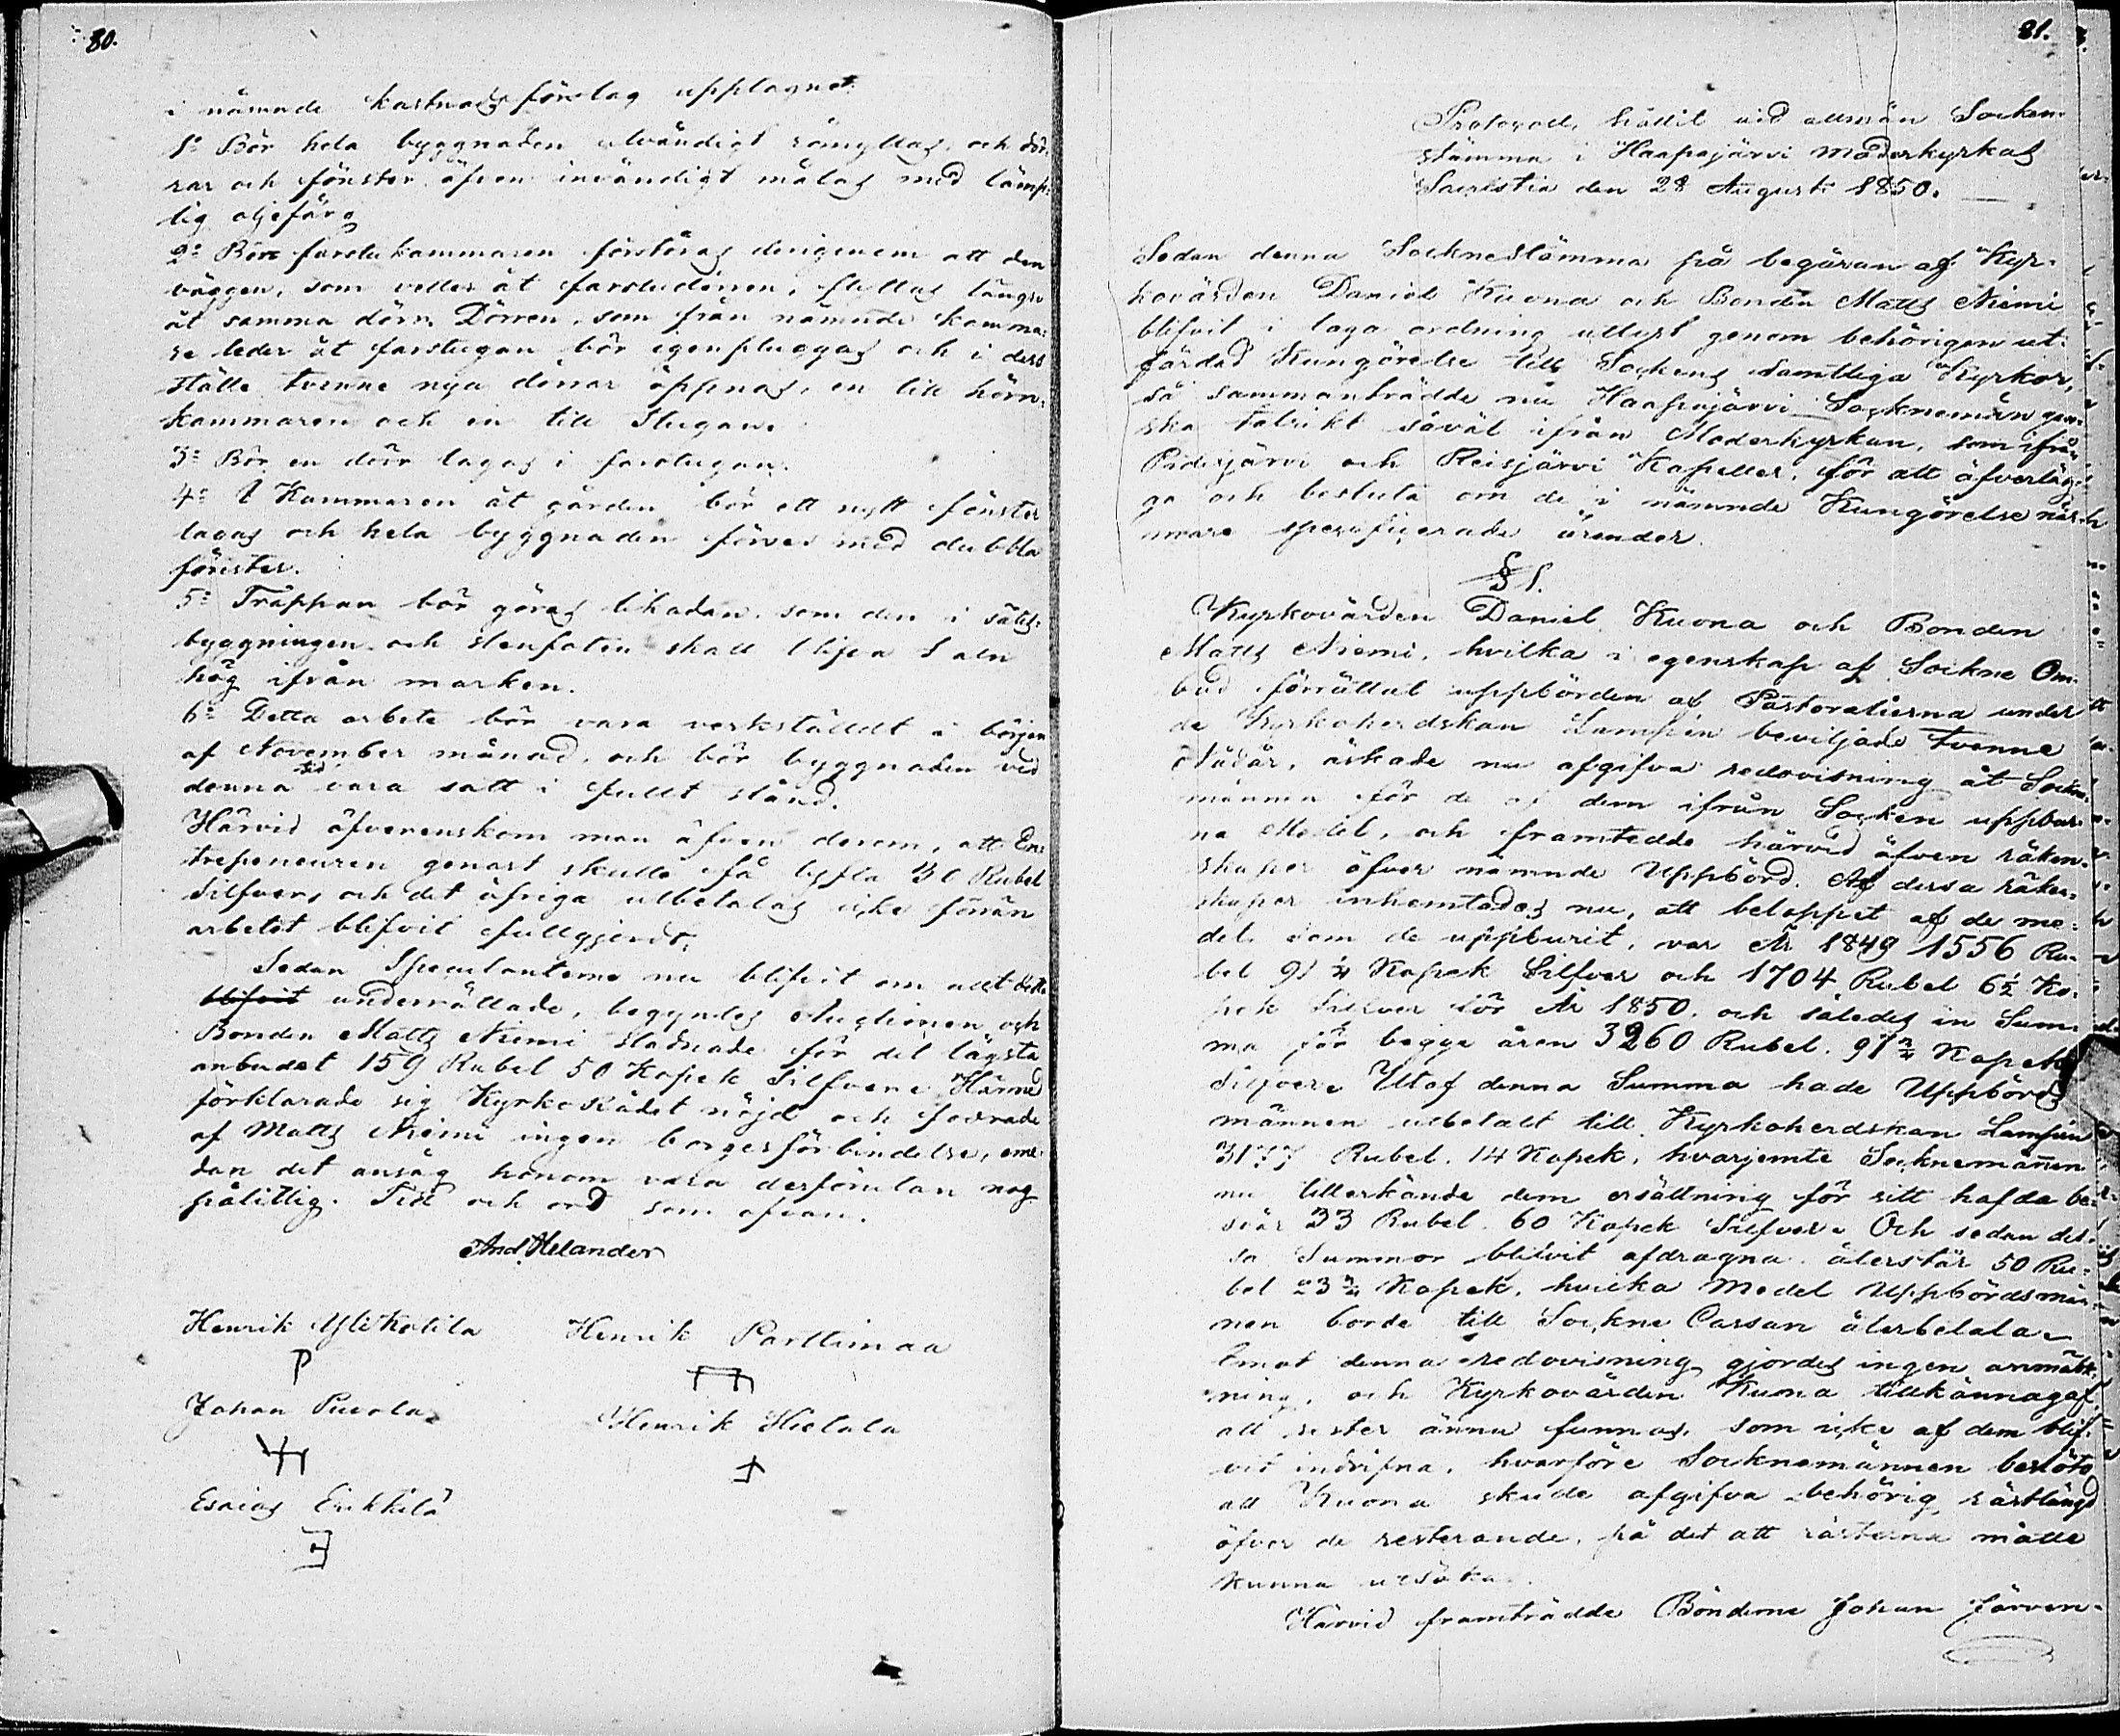 80.
i nämnde kostnadsförslag upptagnet:
1:o Bör hela byggnaden utvändigt rämyllas, och dör-
rar och fönster äfven invändigt målas med lämp-
lig oljefärg
2:o Bör farstukammaren förstoras derigenom att den
väggen, som vetter åt farstudörren, flyttas längre
åt samma dörr. Dörren, som från nämnde kamma-
re leder åt farstugan bör igenpluggas och i dess
ställe tvenne nya dörrar öppnas, en till hörn-
kammaren och en till Stugan.
3:o Bör en dörr lagas i farstugan.
4:o I Kammaren åt gården bör ett nytt fönster
lagas och hela byggnaden förses med dubbla
fönster.
5:o Trappan bör göras likadan som den i sätes-
byggningen och stenfoten skall blifva 1 aln
hög ifrån marken.
6:o Detta arbete bör vara verkstäldt i början
af November månad, och bör byggnaden vid
denna tid vara satt i fullt stånd.
Härvid äfverenskom man äfven derom, att En-
trepeneuren genast skulle få lyfta 30 Rubel
Silfver, och det öfriga utbetalas icke förrän
arbetet blifvit fullgjordt.
Sedan Speculanterne nu blifvit om allt detta
blifvit underrättade, begyntes Auctionen och
Bonden Matts Niemi stadnade för det lägsta
anbudet 159 Rubel 50 Kopek Silfver. Härmed
förklarade sig KyrkoRådet nöjd och fodrade
af Matts Niemi ingen borgesförbindelse, eme-
dan det ansåg honom vara derförutan nog
pålitlig. Tid och ord som ofvan.
And. Helander
Henrik Ylikotila Henrik Parttimaa
Johan Purola Henrik Hietala
Esaias Erikkilä
81.
Protocoll, hållit vid allmän Socken-
stämma i Haapajärvi Moderkyrkas
Sacristia den 28 Augusti 1850.
Sedan denna Socknestämma på begäran af Kyr-
kovärden Daniel Kuona och Bonden Matts Niemi
blifvit i laga ordning utlyst genom behörigen ut-
färdad Kungörelse till Sockens samtliga Kyrkor,
så sammanträdde nu Haapajärvi Socknemän gan-
ska talrikt såväl ifrån Moderkyrkan, som ifrån
Pidisjärvi och Reisjärvi Kapeller, för att öfverläg-
ga och besluta om de i nämnde Kungörelse när-
mare specificerade ärender.
§ 1.
Kyrkovärden Daniel Kuona och Bonden
Matts Niemi, hvilka i egenskap af Sockne Om-
bud förrättat uppbörden af Pastoralierna under
de Kyrkoherdskan Lampén beviljade tvenne
Nådår, äskade nu afgifva redovisning åt Sockne-
männen för de af dem ifrån Socken uppbur-
na Medel, och framtedde härvid äfven räken-
skaper öfver nämnde Uppbörd. Af dessa räken-
skaper inhemtades nu, att beloppet af de me-
del som de uppburit, var År 1849 1556 Ru-
bel 91 1/4 Kopek Silfver och 1704 Rubel 6 1/2 Ko-
pek Silfver för År 1850, och således in Sum-
ma för begge åren 3260 Rubel 97 3/4 Kopek
Silfver. Utaf denna Summa hade Uppbörds
männen utbetalt till Kyrkoherdskan Lampén
3177 Rubel. 14 Kopek, hvarjemte Socknemännen
nu tillerkände dem ersättning för sitt hafda be-
svär 33 Rubel 60 Kopek Silfver. Och sedan des-
sa Summor blifvit afdragna, återstår 50 Ru-
bel 23 3/4 Kopek, hvilka Medel Uppbördsmän-
nen borde till Sockne Cassan återbetala.
Emot denna redovisning gjordes ingen anmärk-
ning, och Kyrkovärden Kuona tillkännagaf
att rester ännu funnos, som icke af dem blif-
vit indrifna, hvarföre Socknemännen beslöto
att Kuona skulle afgifva behörig rästlängd
öfver de resterande, på det att rästerna måtte
kunna utsökas.
Härvid framträdde Bönderne Johan Järven-